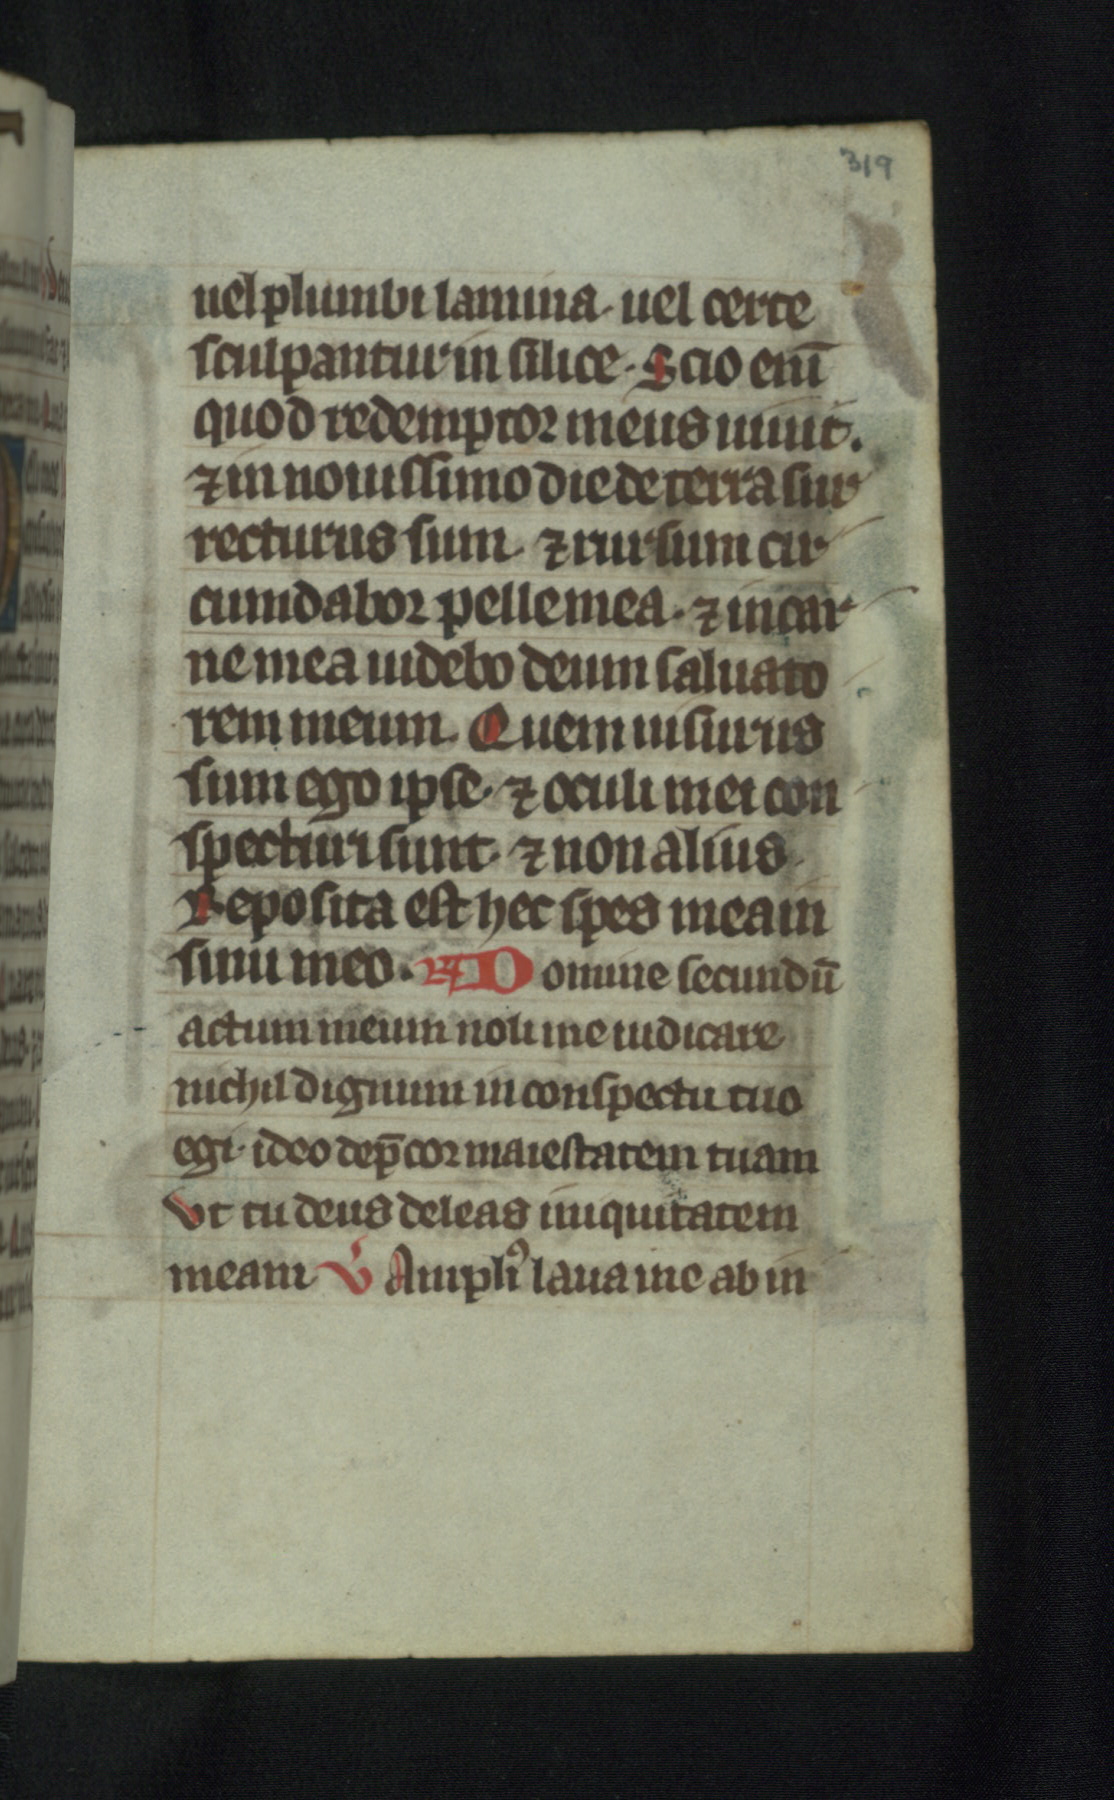 319
uel plumbi lamina. uel certe
sculpantur in silice. Scio enī
quod redemptor meus uiuit.
⁊ in nouissimo die de terra sur
recturus sum. ⁊ rursum cir
cumdabor pelle mea. ⁊ in car
ne mea uidebo deum saluato
rem meum. Quem uisurus
sum ego ipse. ⁊ oculi mei con
specturi sunt. ⁊ non alius.
Reposita est hec spes mea in
sinu meo. ℟ Domine secundū
actum meum noli me iudicare
nichil dignum in conspectu tuo
egi. ideo dep̄cor maiestatem tuam
Vt tu deus deleas iniquitatem
meam ℣ Ampliꝰ laua me ab in